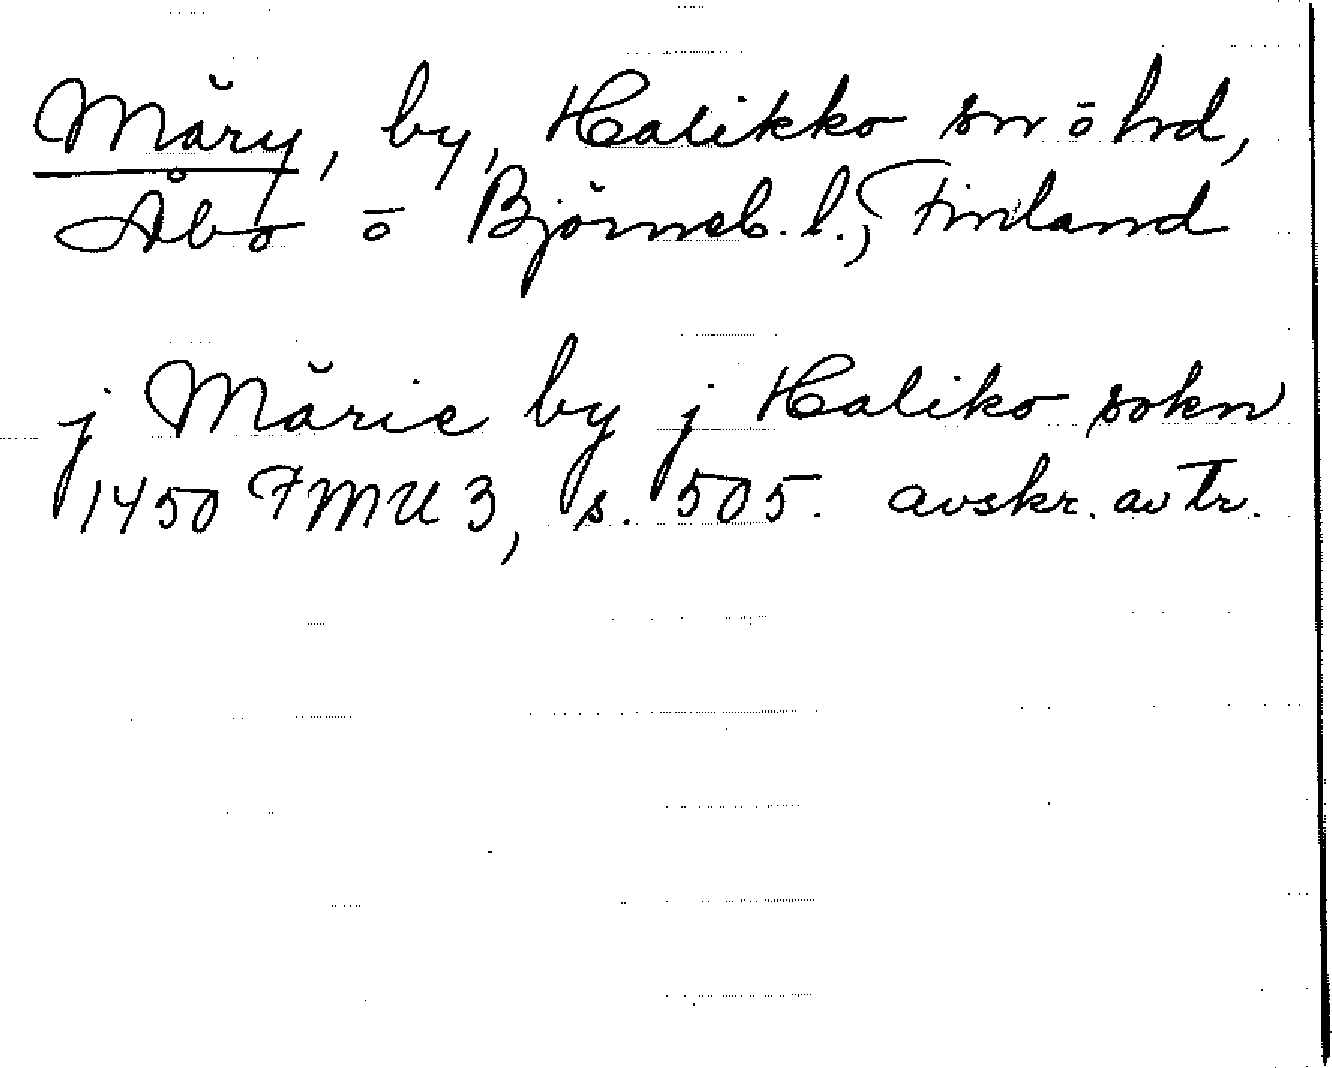 Märy, by, Halikko sn ō hd,
Åbo ō Björneb. l., Finland
j Märie by j Haliko sokn
1450 FMU 3, s. 505. avskr. av Tr.